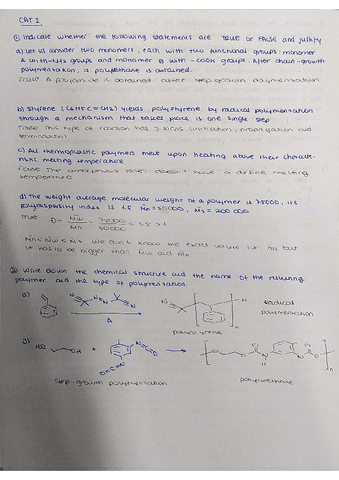 CAT 2
① Indicate whether the following statements are TRUE or FALSE and justify
a) Let us consider two monomers, each with two functional groups: monomer
A with -NH2 groups and monomer B with -COOH groups. After chain-growth
polymerization, a polyurethane is obtained.
False. A polyamide is obtained after step-growth polymerization
b) Styrene (C6H5 C = CH2) yields polystyrene by radical polymerization
through a mechanism that takes place in one single step
False. This type of reaction has 3 steps (initiation, propagation and
termination)
c) All thermoplastic polymers melt upon heating above their characte-
ristic melting temperature
False. The amorphous ones doesn't have a define melting
temperature
d) The weight average molecular weight of a polymer is 75000, its
polydispersity index is 1.5 Mn = 50 000, Mz = 200 000
True D = Mw/Mn = 75000/50000 = 1.5 > 1
Mn < Mw < Mz. We don't know the exact value for Mz but
it has to be bigger than Mw and Mn
② Write down the chemical structure and the name of the resulting
polymer and the type of polymerization.
a) N N=N N Δ N H n Radical
polymerization
polystyrene
b) HO OH + N=C=O O=C=N O O N H N H O n
step-growth polymerization polyurethane